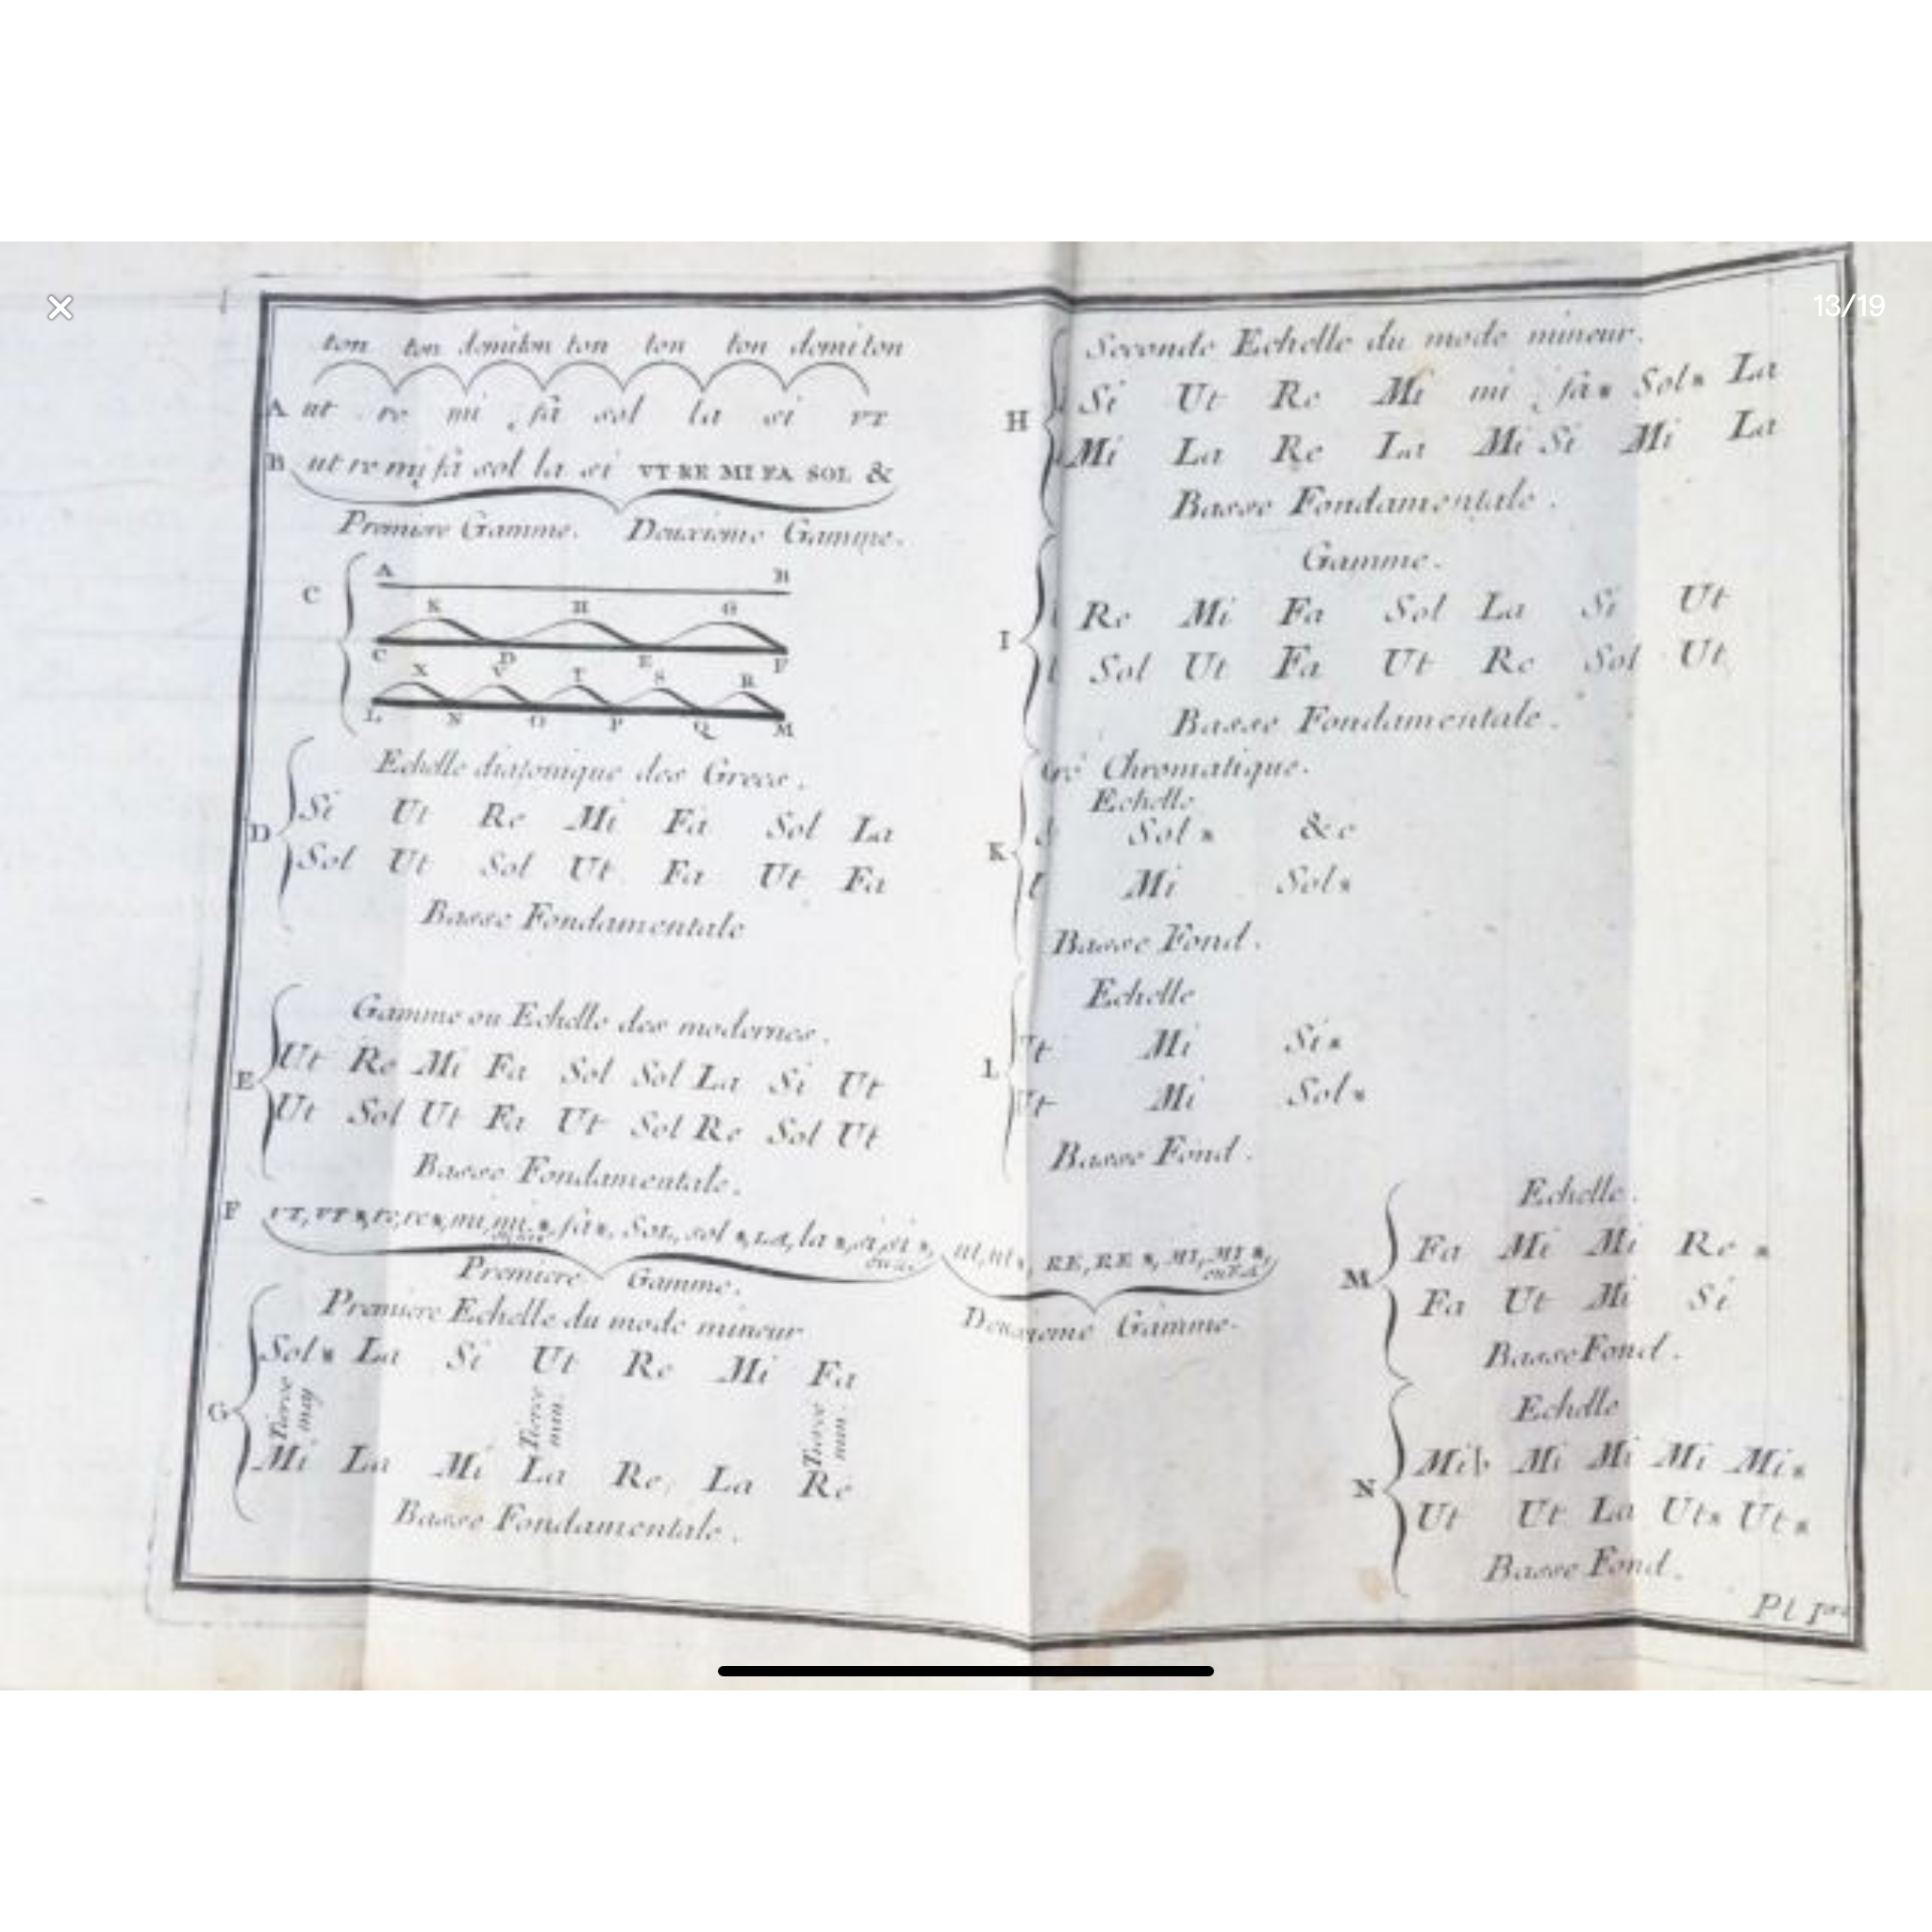 13/19
ton ton demiton ton ton ton demiton
A ut re mi fa sol la si VT
B ut re mi fa sol la si VT RE MI FA SOL &
Premiere Gamme. Deuxieme Gamme.
C
A B
K H G
C D E F
X V T S R
L N O P Q M
Echelle diatonique des Grecs.
D
Si Ut Re Mi Fa Sol La
Sol Ut Sol Ut Fa Ut Fa
Basse Fondamentale
Gamme ou Echelle des modernes.
E
Ut Re Mi Fa Sol Sol La Si Ut
Ut Sol Ut Fa Ut Sol Re Sol Ut
Basse Fondamentale.
F VT, VT ⨳, re, re⨳, mi, mi⨳, fa⨳, SOL, sol ⨳, LA, la ⨳, si, si ⨳, ut, ut⨳, RE, RE ⨳, MI, MI ⨳,
Premiere Gamme.
Deuxieme Gamme.
Premiere Echelle du mode mineur
G
Sol⨳ La Si Ut Re Mi Fa
Tierce maj Tierce min. Tierce min.
Mi La Mi La Re La Re
Basse Fondamentale.
Seconde Echelle du mode mineur.
H
Si Ut Re Mi mi fa⨳ Sol⨳ La
Mi La Re La Mi Si Mi La
Basse Fondamentale.
Gamme.
I
Re Mi Fa Sol La Si Ut
Sol Ut Fa Ut Re Sol Ut
Basse Fondamentale.
Chromatique.
Echelle
K
Sol⨳ &c
Mi Sol⨳
Basse Fond.
Echelle
L
Ut Mi Si⨳
Ut Mi Sol⨳
Basse Fond.
Echelle.
M
Fa Mi Mi Re ⨳
Fa Ut Mi Si
Basse Fond.
Echelle
N
Mi♭ Mi Mi Mi Mi⨳
Ut Ut La Ut⨳ Ut⨳
Basse Fond.
Pl I